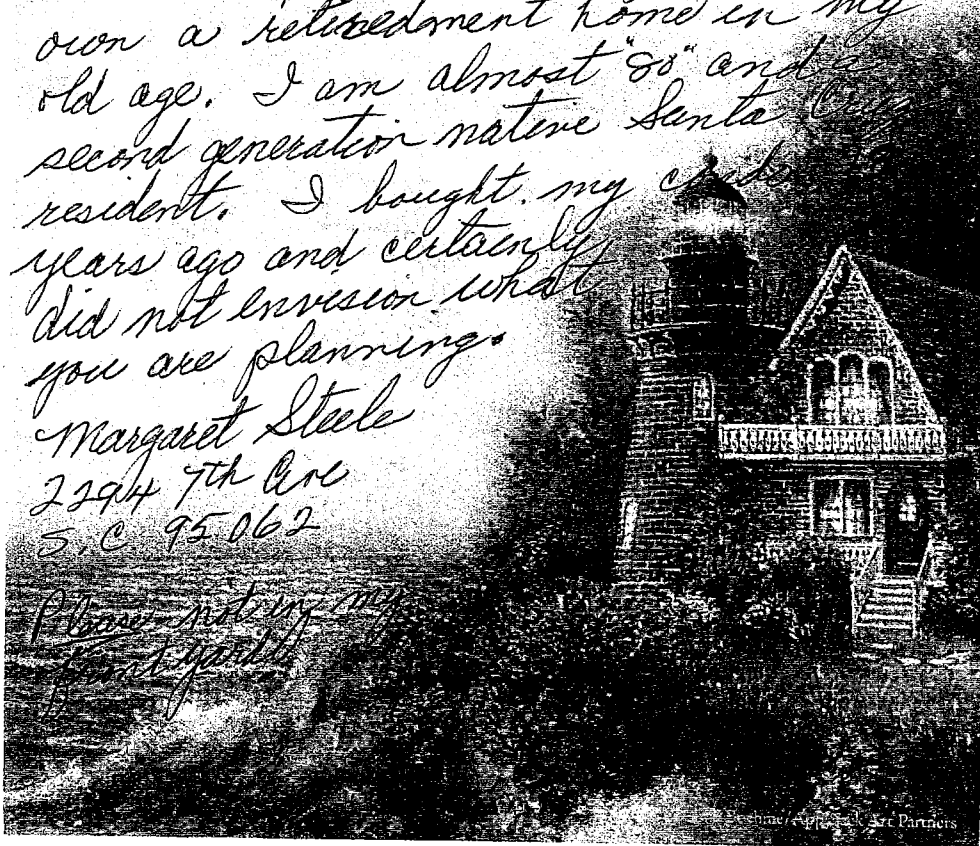 own a retiredment home in my
old age. I am almost "80" and a
second generation native Santa Cruz
resident. I bought my
years ago and certainly
did not envision what
you are planning.
Margaret Steele
2294 7th Ave
S.C 95062
Please not in my
front yard
Art Partners